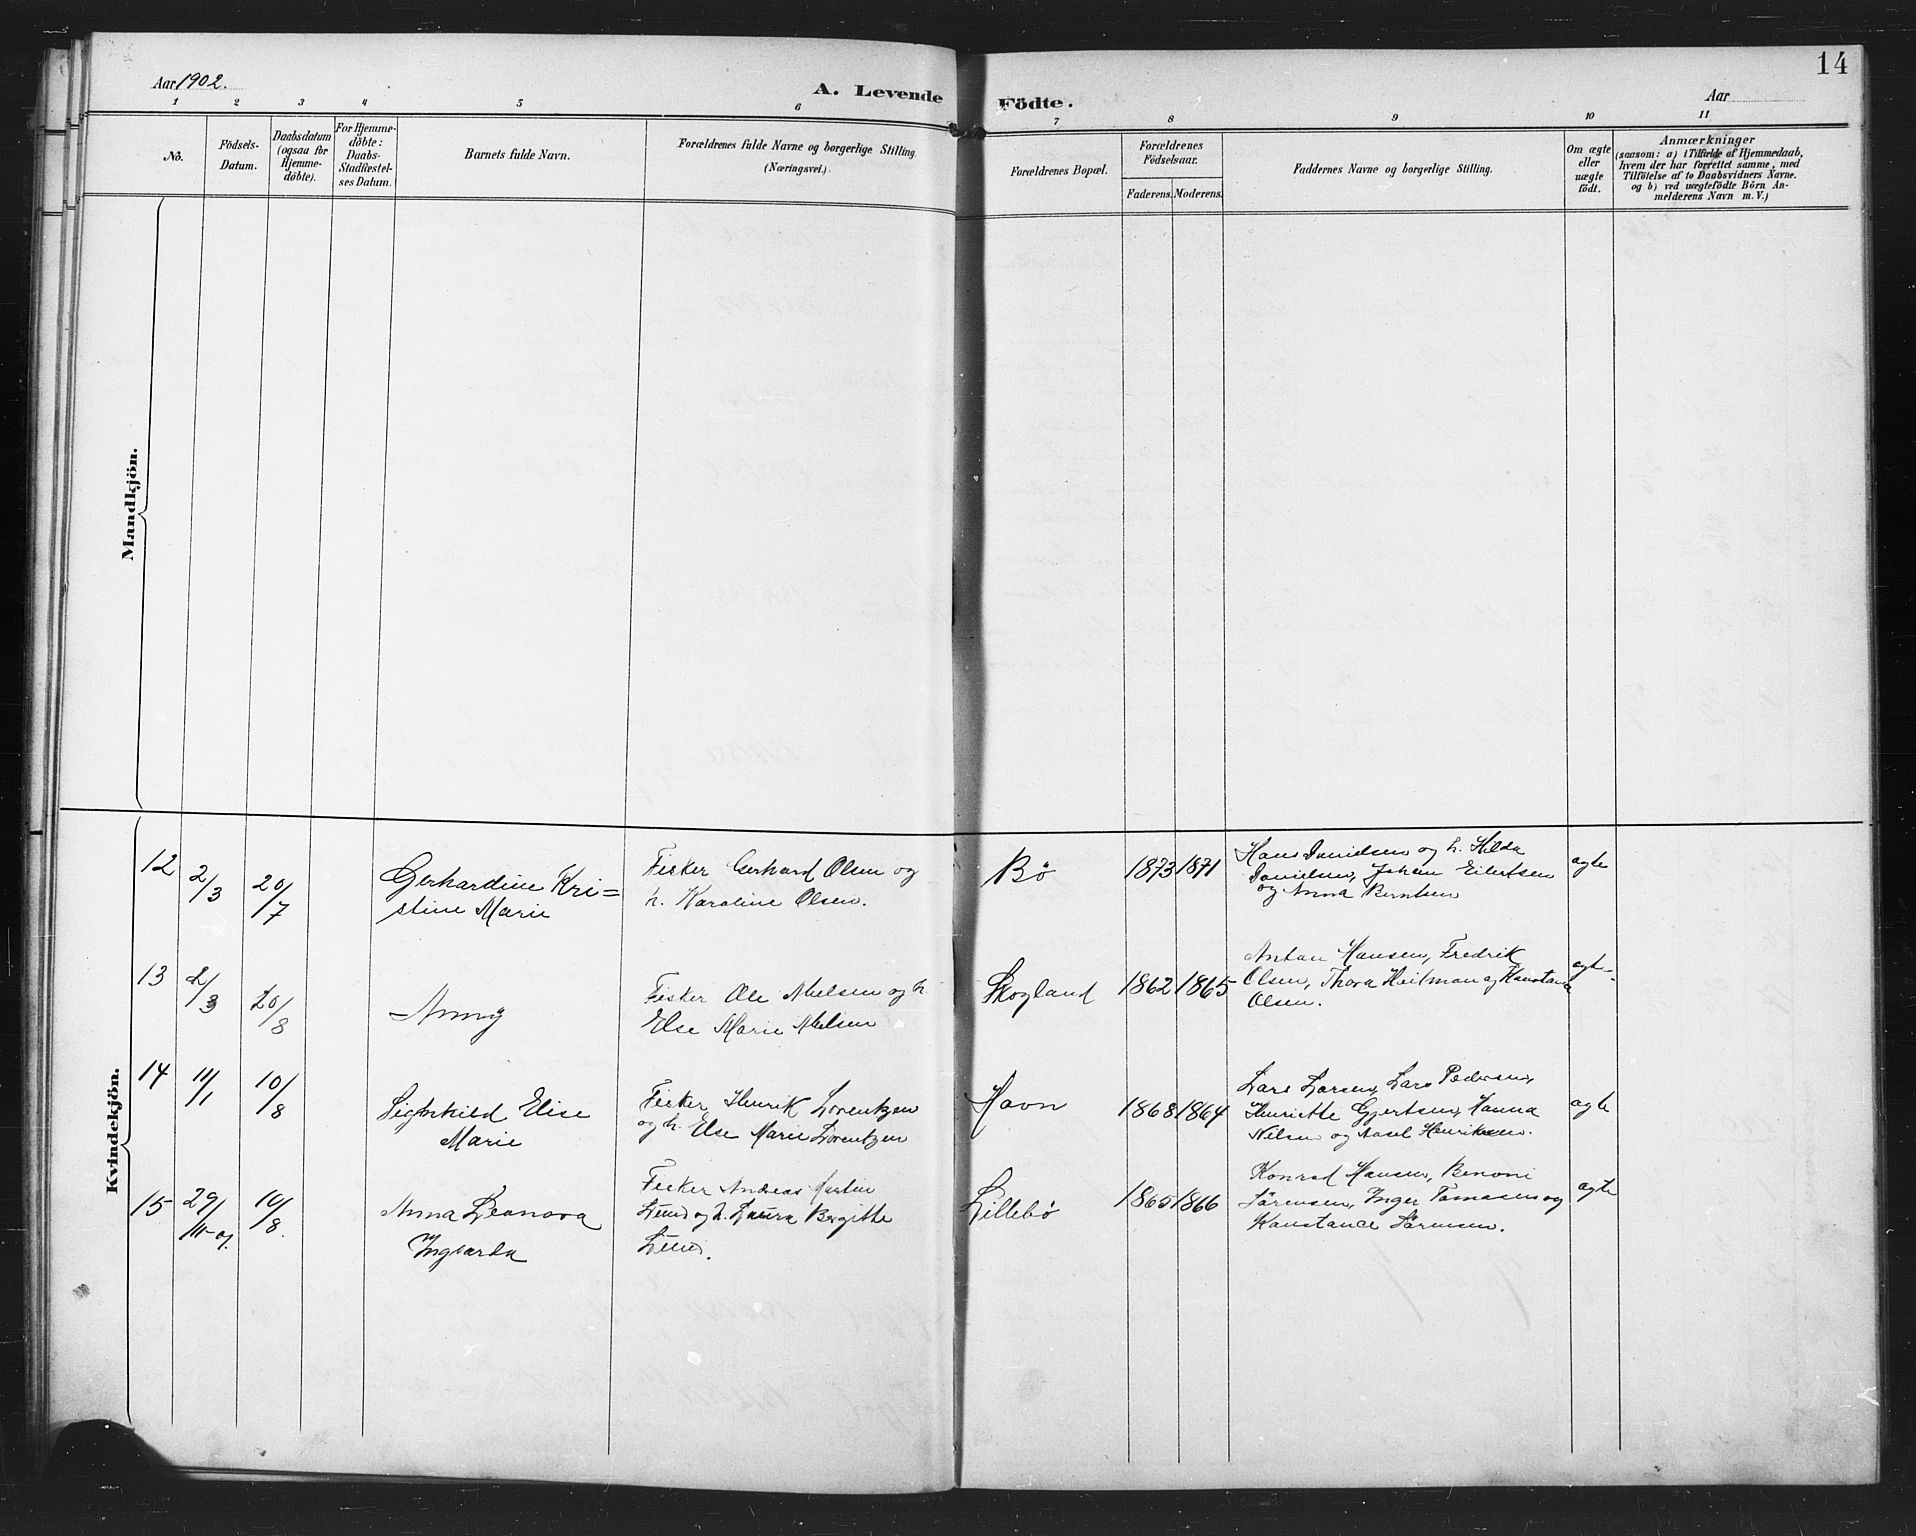 14
Aar 1902.
A. Levende Födte.
Aar
1 2 3 4 5 6 7 8 9 10 11
No.
Födsels-
Datum.
Daabsdatum
(ogsaa for
Hjemme-
döbte).
For Hjemme-
döbte:
Daabs-
Stadfæstel-
ses Datum.
Barnets fulde Navn.
Forældrenes fulde Navne og borgerlige Stilling.
(Næringsvei.)
Forældrenes Bopæl.
Forældrenes
Födselsaar.
Faderens. Moderens.
Faddernes Navne og borgerlige Stilling.
Om ægte
eller
uægte
födt.
Anmærkninger
(saasom: a) i Tilfælde af Hjemmedaab,
hvem der har forrettet samme, med
Tilföielse af to Daabsvidners Navne.
og b) ved uægtefödte Börn An-
melderens Navn m. V.)
Mandkjön.
Kvindekjön.
12 2/3 20/7
Gerhardine Kri=
stine Marie
Fisker Gerhard Olsen og
h. Karoline Olsen.
Bø
1873 1871
Hans Danielsen og h. Hilda
Danielsen, Johan Eilertsen
og Anna Berntsen
agte
13 2/3 20/8
Anny
Fisker Ole Nielsen og h.
Else Marie Nielsen
Skogland
1862 1865
Anton Hansen, Fredrik
Olsen, Thora Heitman og Konstance
Olsen.
agte
14 11/1 10/8
Elise
Marie
Fisker Henrik Lorentzen
og h. Else Marie Lorentzen
Havn
1868 1864
Lars Larsen, Lars Pedersen,
Henriette Gjertsen, Hanna
Nilsen og Aasel Henriksen.
agte
15 29/11-01. 10/8.
Anna Leonora
Ingvarda
Fisker Andreas Martin
Lund og h. Laura Bergitte
Lund.
Lillebø
1865 1866
Konrad Hansen, Benoni
Sörensen, Inger Tomasen og
Konstance Sörensen.
agte